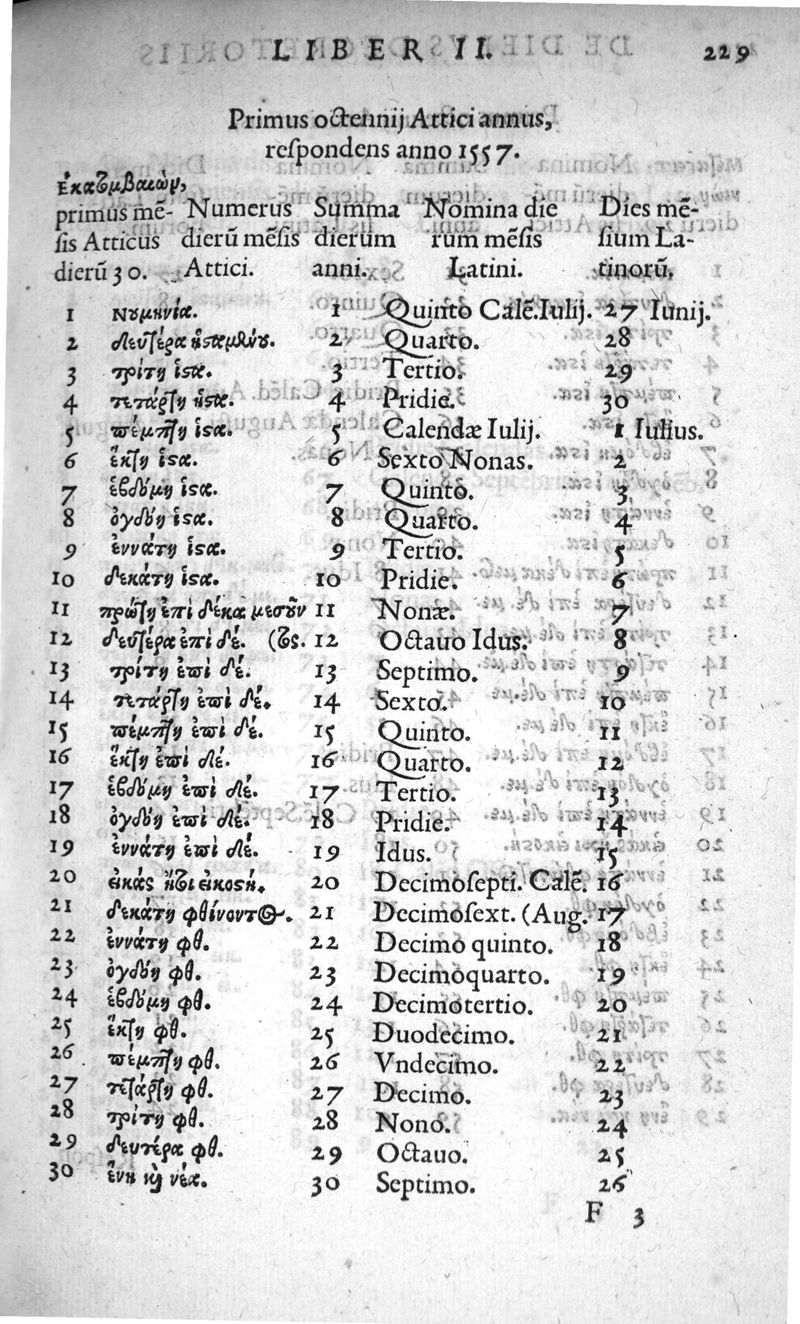 LIBER II. 229
Primus octennij Attici annus,
respondens anno 1557.
Ἑκατομβαιών,
primus mē- Numerus Summa Nomina die Dies mē-
sis Atticus dierū mēsis dierum rum mēsis sium La-
dierū 30. Attici. anni. Latini. tinorū.
1 νουμηνία. 1 Quinto Calē. Iulij. 27 Iunij.
2 δευτέρα ἱσταμένου. 2 Quarto. 28
3 τρίτη ἱστα. 3 Tertio. 29
4 τετάρτη ἱστα. 4 Pridie. 30
5 πέμπτη ἱστα. 5 Calendæ Iulij. 1 Iulius.
6 ἕκτη ἱστα. 6 Sexto Nonas. 2
7 ἑβδόμη ἱστα. 7 Quinto. 3
8 ὀγδόη ἱστα. 8 Quarto. 4
9 ἐννάτη ἱστα. 9 Tertio. 5
10 δεκάτη ἱστα. 10 Pridie. 6
11 πρώτη ἐπὶ δέκα μεσοῦν 11 Nonæ. 7
12 δευτέρα ἐπὶ δέ. (τος. 12 Octauo Idus. 8
13 τρίτη ἐπὶ δέ. 13 Septimo. 9
14 τετάρτη ἐπὶ δέ. 14 Sexto. 10
15 πέμπτη ἐπὶ δέ. 15 Quinto. 11
16 ἕκτη ἐπὶ δέ. 16 Quarto. 12
17 ἑβδόμη ἐπὶ δέ. 17 Tertio. 13
18 ὀγδόη ἐπὶ δέ. 18 Pridie. 14
19 ἐννάτη ἐπὶ δέ. 19 Idus. 15
20 εἰκὰς ἤτοι εἰκοστή. 20 Decimosepti. Calē. 16
21 δεκάτη φθίνοντος. 21 Decimosext. (Aug. 17
22 ἐννάτη φθ. 22 Decimo quinto. 18
23 ὀγδόη φθ. 23 Decimoquarto. 19
24 ἑβδόμη φθ. 24 Decimotertio. 20
25 ἕκτη φθ. 25 Duodecimo. 21
26 πέμπτη φθ. 26 Vndecimo. 22
27 τετάρτη φθ. 27 Decimo. 23
28 τρίτη φθ. 28 Nono. 24
29 δευτέρα φθ. 29 Octauo. 25
30 ἕνη καὶ νέα. 30 Septimo. 26
F 3